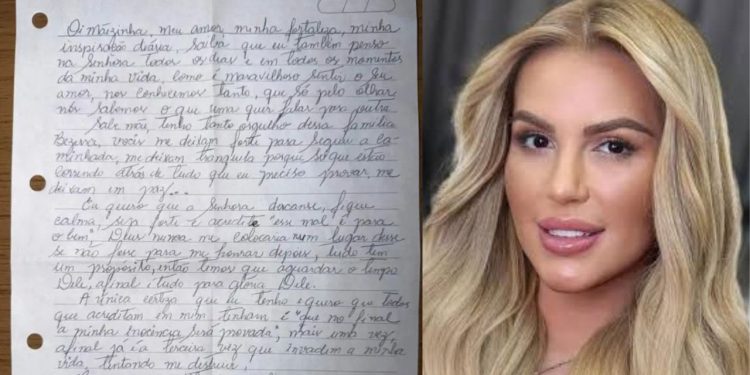 Oi mãizinha, meu amor, minha fortaleza, minha
inspiração diária, saiba que eu também penso
na senhora todos os dias e em todos os momentos
da minha vida, como é maravilhoso sentir o seu
amor, nos conhecemos tanto, que só pelo olhar
nós sabemos o que uma quer falar para outra.
Sabe mãe, tenho tanto orgulho dessa família
Bezerra, vocês me deixam forte para seguir a ca-
minhada, me deixam tranquila porque sei que estão
correndo atrás de tudo que eu preciso provar, me
deixam em paz...
Eu quero que a senhora descanse, fique
calma, seja forte e acredite "esse mal é para
o bem", Deus nunca me colocaria num lugar desse
se não fosse para me honrar depois, tudo tem
um propósito, então temos que aguardar o tempo
Dele, afinal é tudo para glória Dele.
A única certeza que eu tenho e quero que todos
que acreditam em mim tenham é "que no final
a minha inocência será provada", mais uma vez,
afinal já é a terceira vez que invadem a minha
vida, tentando me destruir.